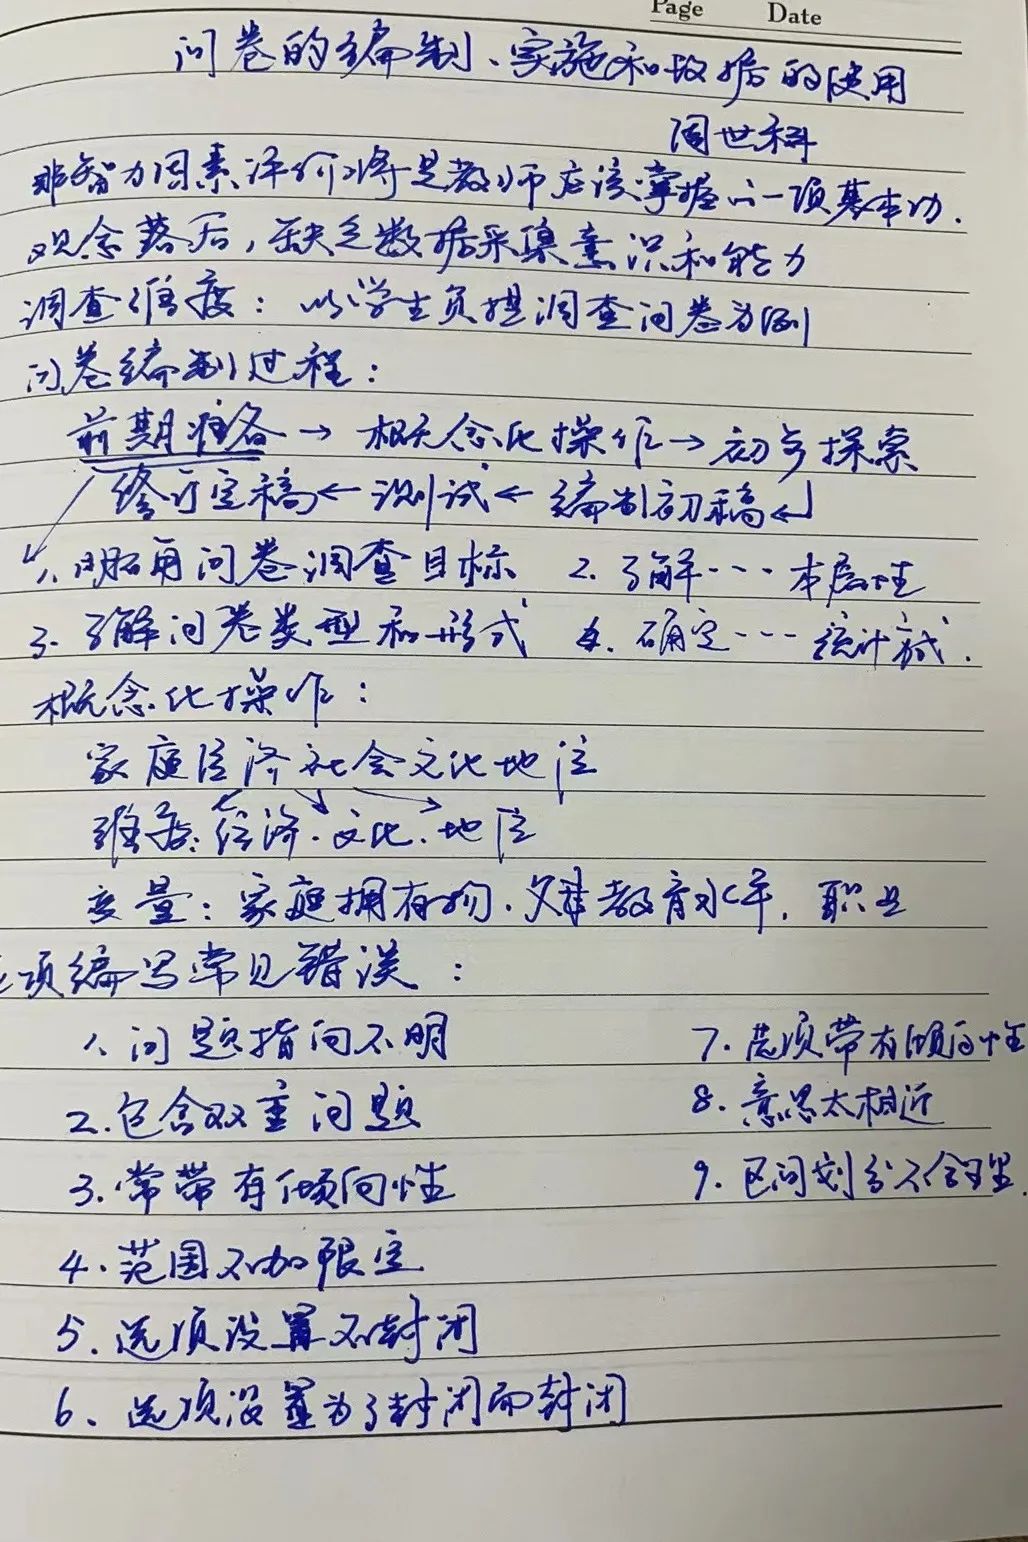 Page Date
问卷的编制、实施和数据的使用
周世科
非智力因素评价将是教师应该掌握的一项基本功.
观念落后,缺乏数据采集意识和能力
调查维度:以学生负担调查问卷为例
问卷编制过程:
前期准备→概念化操作→初步探索
修订定稿←测试←编制初稿↵
1.明确问卷调查目标 2.了解…本质属性
3.了解问卷类型和形式 4.确定…统计方式.
概念化操作:
家庭经济社会文化地位
维度:经济.文化.地位
变量:家庭拥有物.父母教育水平.职业
选项编写常见错误:
1.问题指向不明
2.包含双重问题
3.常带有倾向性
4.范围不加限定
5.选项设置不封闭
6、选项设置为了封闭而封闭
7.选项带有倾向性
8.意思太相近
9.区间划分不合理.